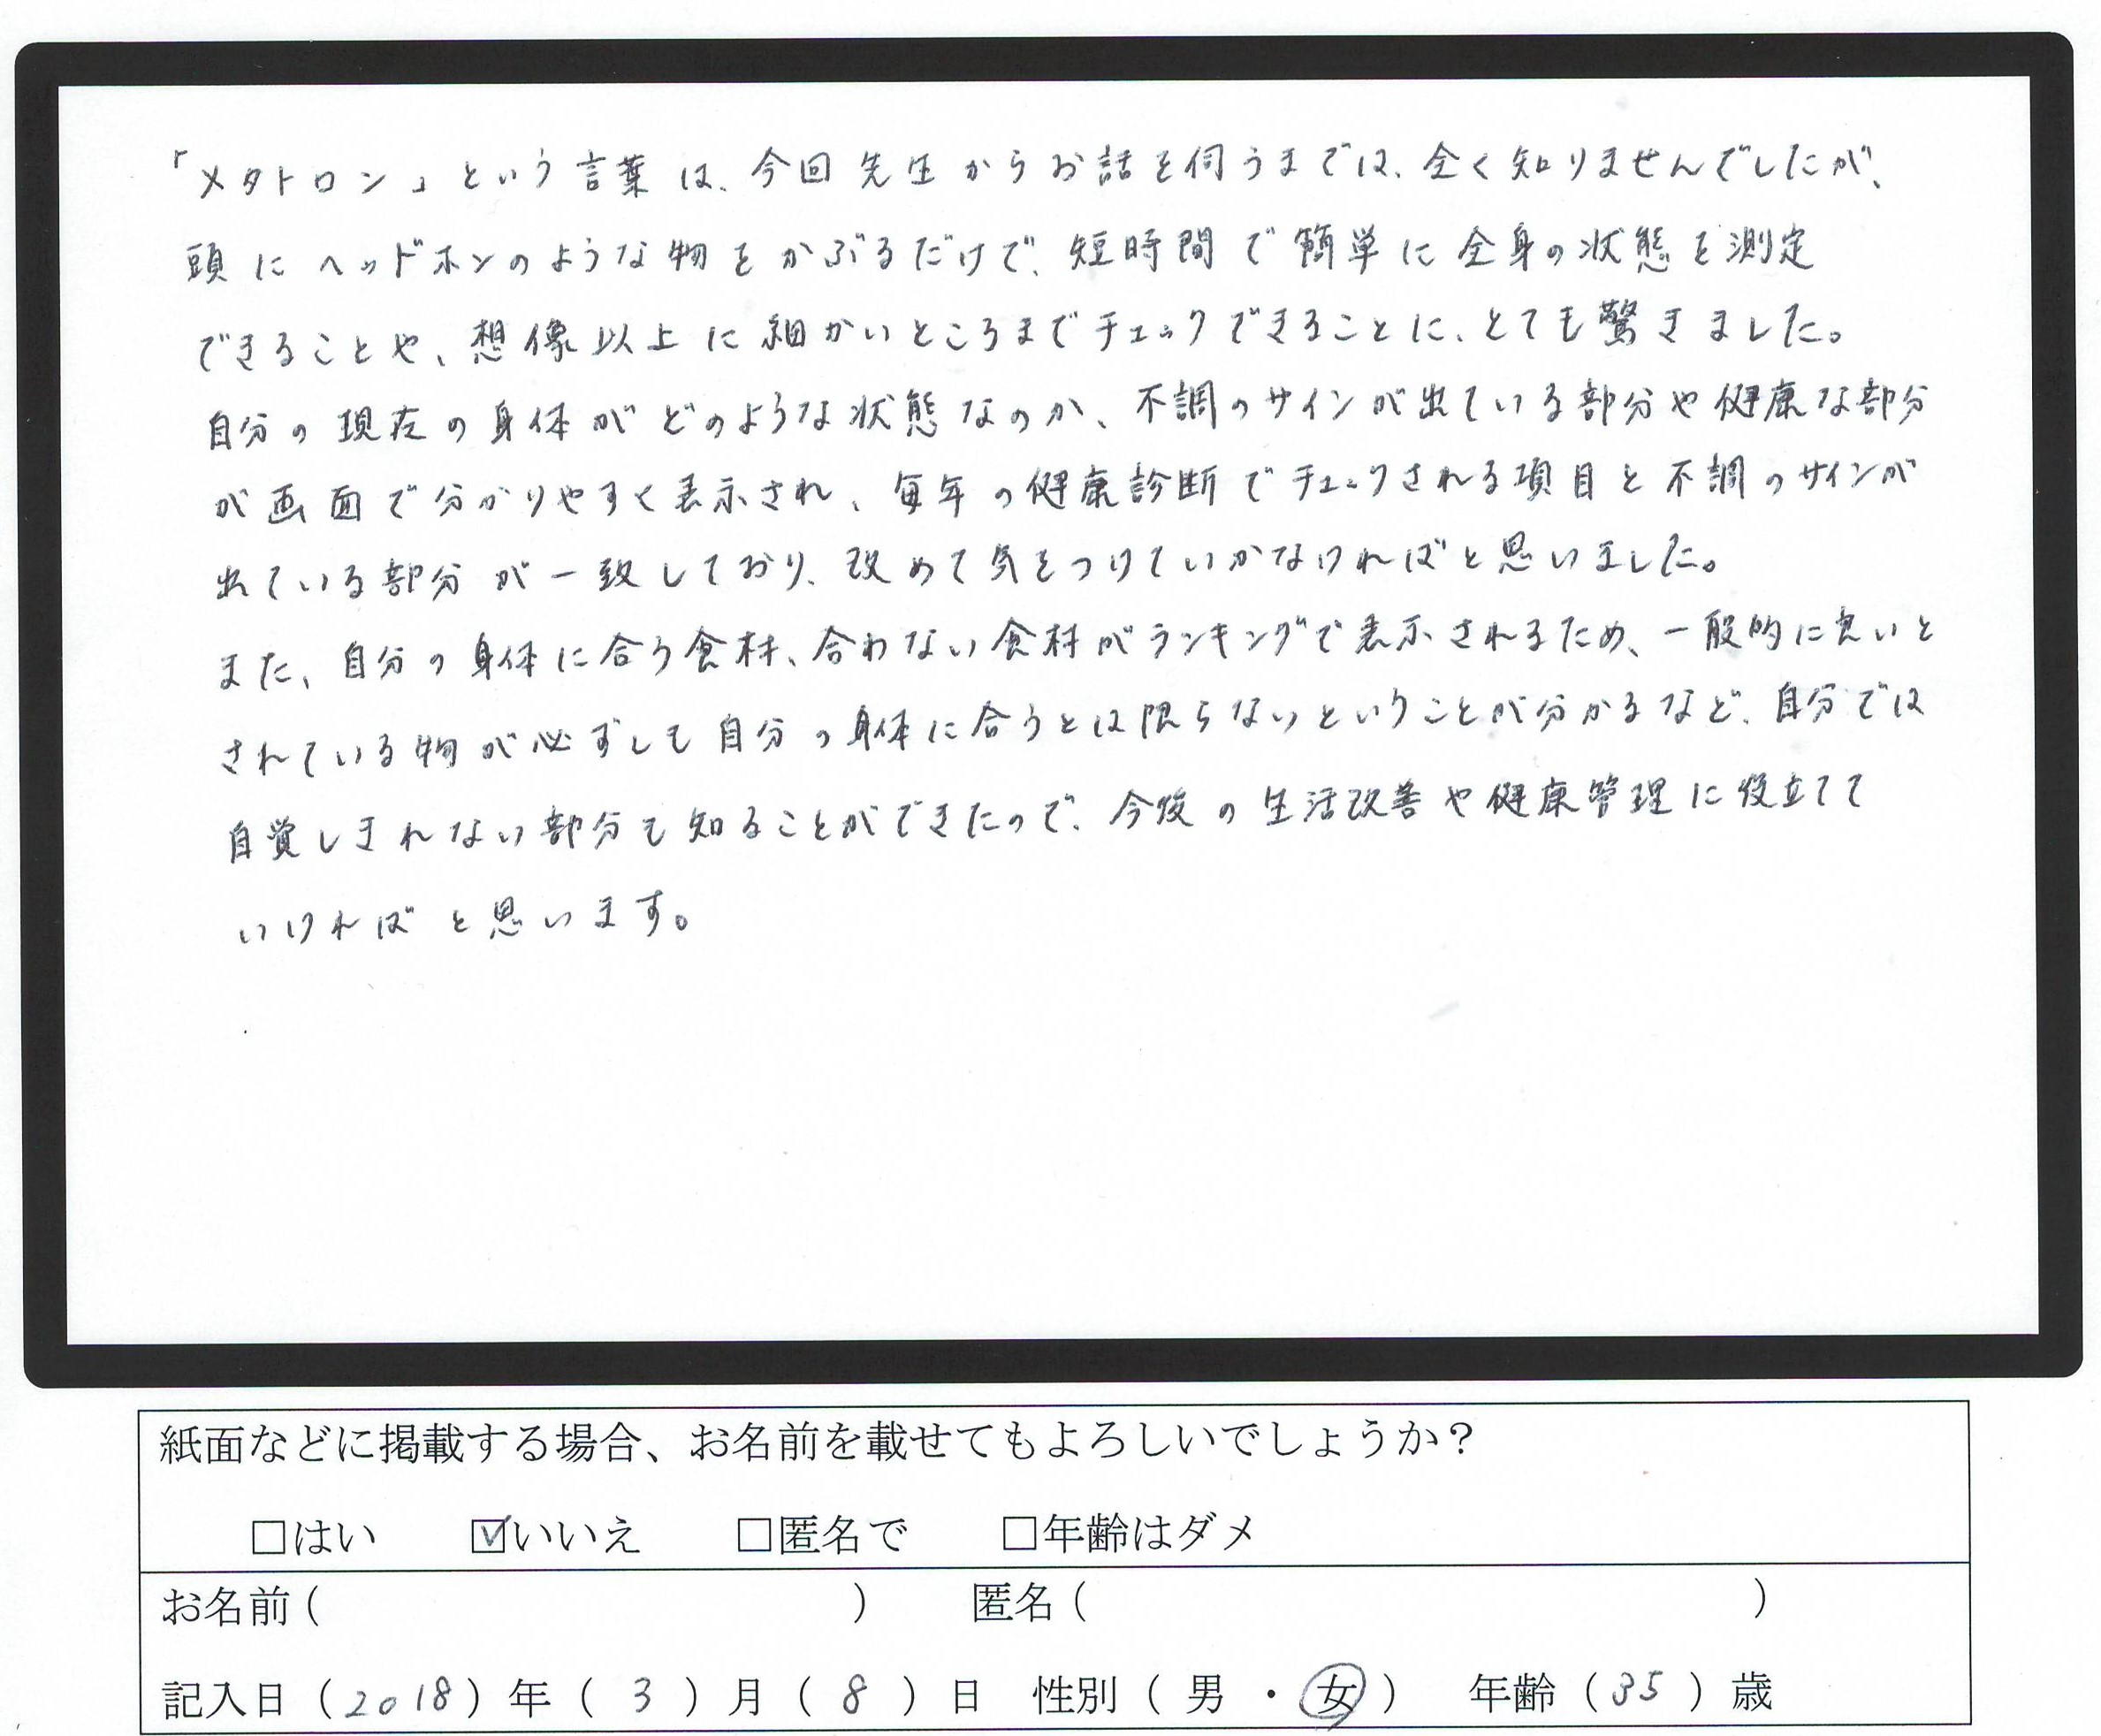 「メタトロン」という言葉は、今回先生からお話を伺うまでは、全く知りませんでしたが、
頭にヘッドホンのような物をかぶるだけで、短時間で簡単に全身の状態を測定
できることや、想像以上に細かいところまでチェックできることに、とても驚きました。
自分の現在の身体がどのような状態なのか、不調のサインが出ている部分や健康な部分
が画面で分かりやすく表示され、毎年の健康診断でチェックされる項目と不調のサインが
出ている部分が一致しており、改めて気をつけていかなければと思いました。
また、自分の身体に合う食材、合わない食材がランキングで表示されるため、一般的に良いと
されている物が必ずしも自分の身体に合うとは限らないということが分かるなど、自分では
自覚しきれない部分も知ることができたので、今後の生活改善や健康管理に役立てて
いければと思います。
紙面などに掲載する場合、お名前を載せてもよろしいでしょうか？
□はい ☑いいえ □匿名で □年齢はダメ
お名前（ ） 匿名（ ）
記入日（2018）年（3）月（8）日 性別（男・女） 年齢（35）歳